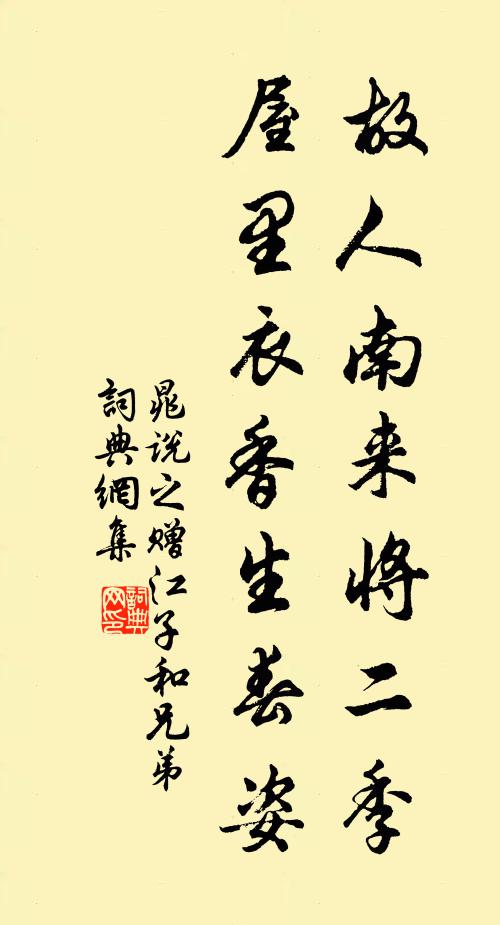 故人南来將二季
屋里衣香生春姿
晁说之赠江子和兄弟
詞典網集
詞典网印